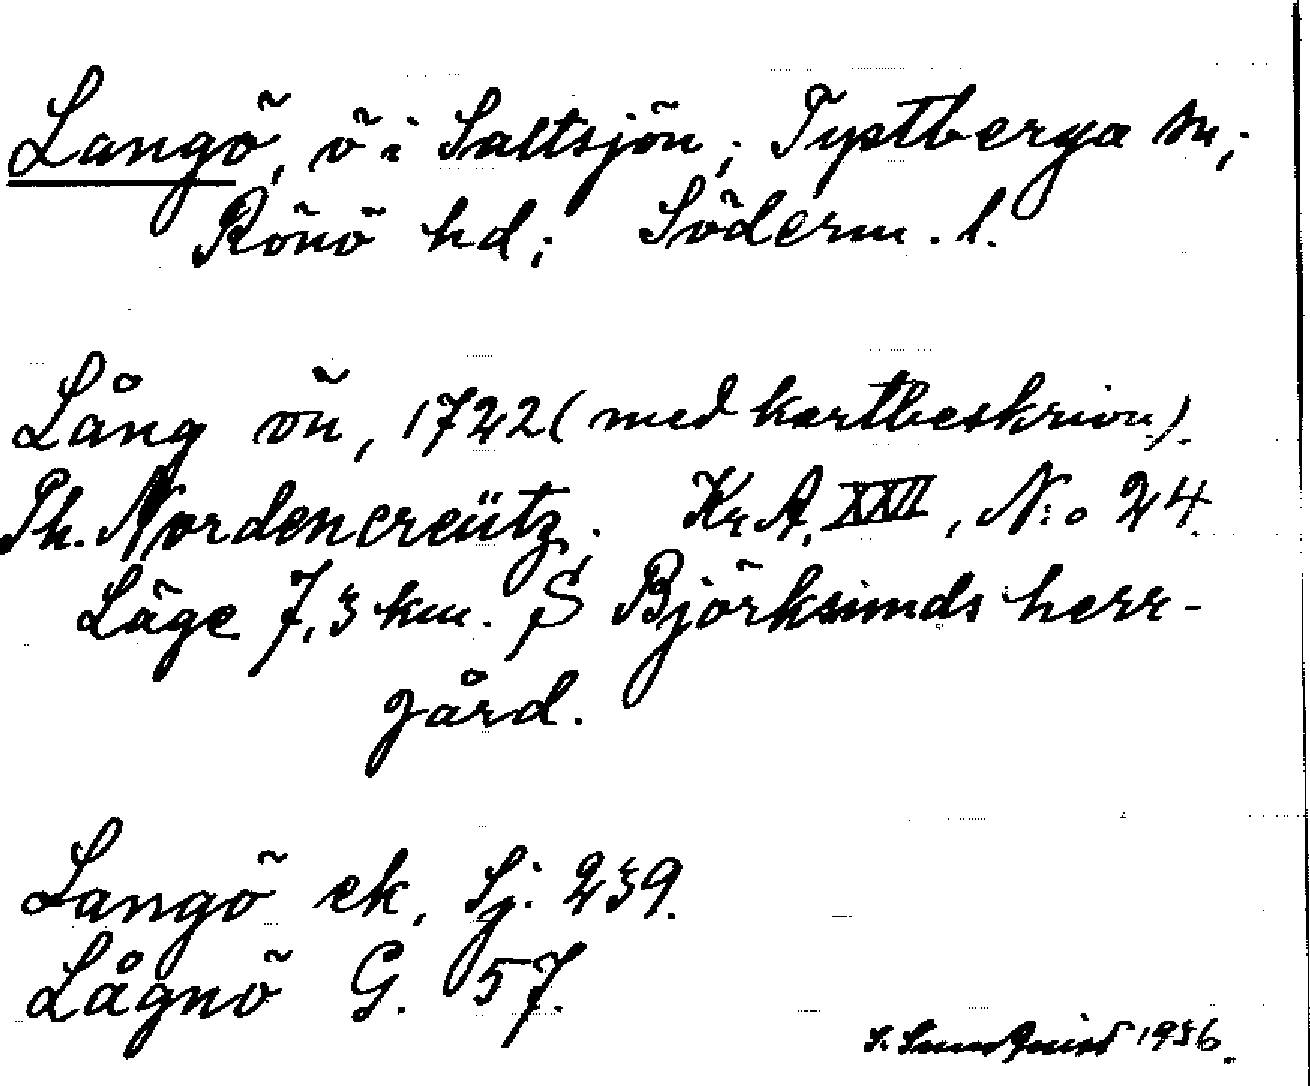 Langö, ö i Saltsjön; Tystberga sn;
Rönö hd; Söderm. l.
Lång ön, 1722 (med kartbeskrivn).
Ph. Nordencreütz. Kr. A. XXVII, N:o 24.
Läge 7,3 km. S Björksunds herr-
gård.
Langö ek. Sj. 239.
Lågnö G. 57.
S. Sundquist 1936.